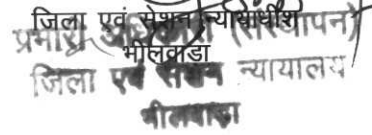 जिला एवं सेशन न्यायाधीश
प्रभारी अधिकारी (संस्थापन)
भीलवाडा
जिला एवं सेशन न्यायालय
भीलवाड़ा